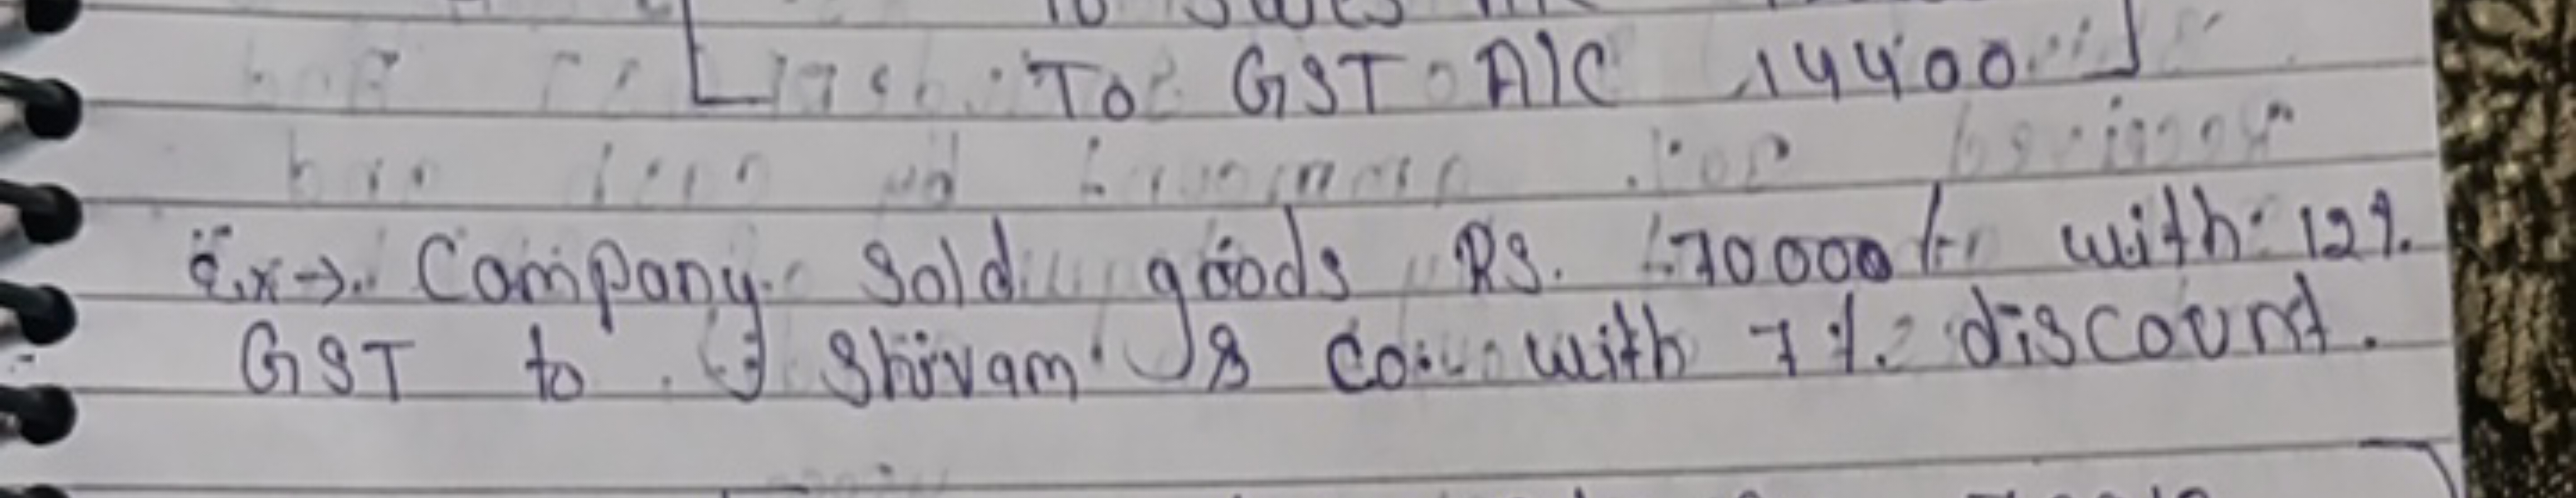 To Sales A/C
To GST A/C 14400
Ex→. Company sold goods Rs. 70000/- with 12%
GST to Shivam & Co. with 7% discount.